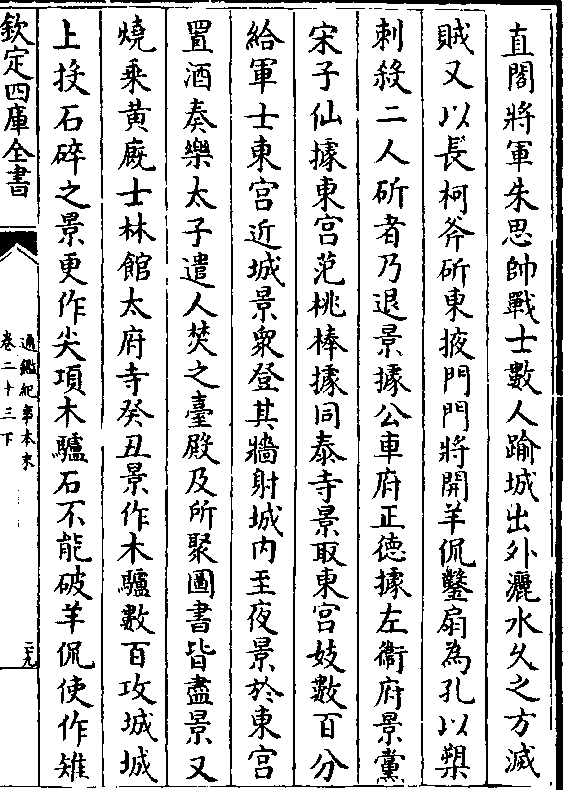 直閣將軍朱思帥戰士數人踰城出外灑水久之方滅
賊又以長柯斧斫東掖門門將開羊侃鑿扇為孔以槊
刺殺二人斫者乃退景據公車府正德據左衛府景黨
宋子仙據東宮范桃棒據同泰寺景取東宮妓數百分
給軍士東宮近城景衆登其牆射城内至夜景於東宮
置酒奏樂太子遣人焚之臺殿及所聚圖書皆盡景又
燒乘黄廐士林館太府寺癸丑景作木驢數百攻城城
上投石碎之景更作尖項木驢石不能破羊侃使作雉
欽定四庫全書
通鑑紀事本末
卷二十三下
二九